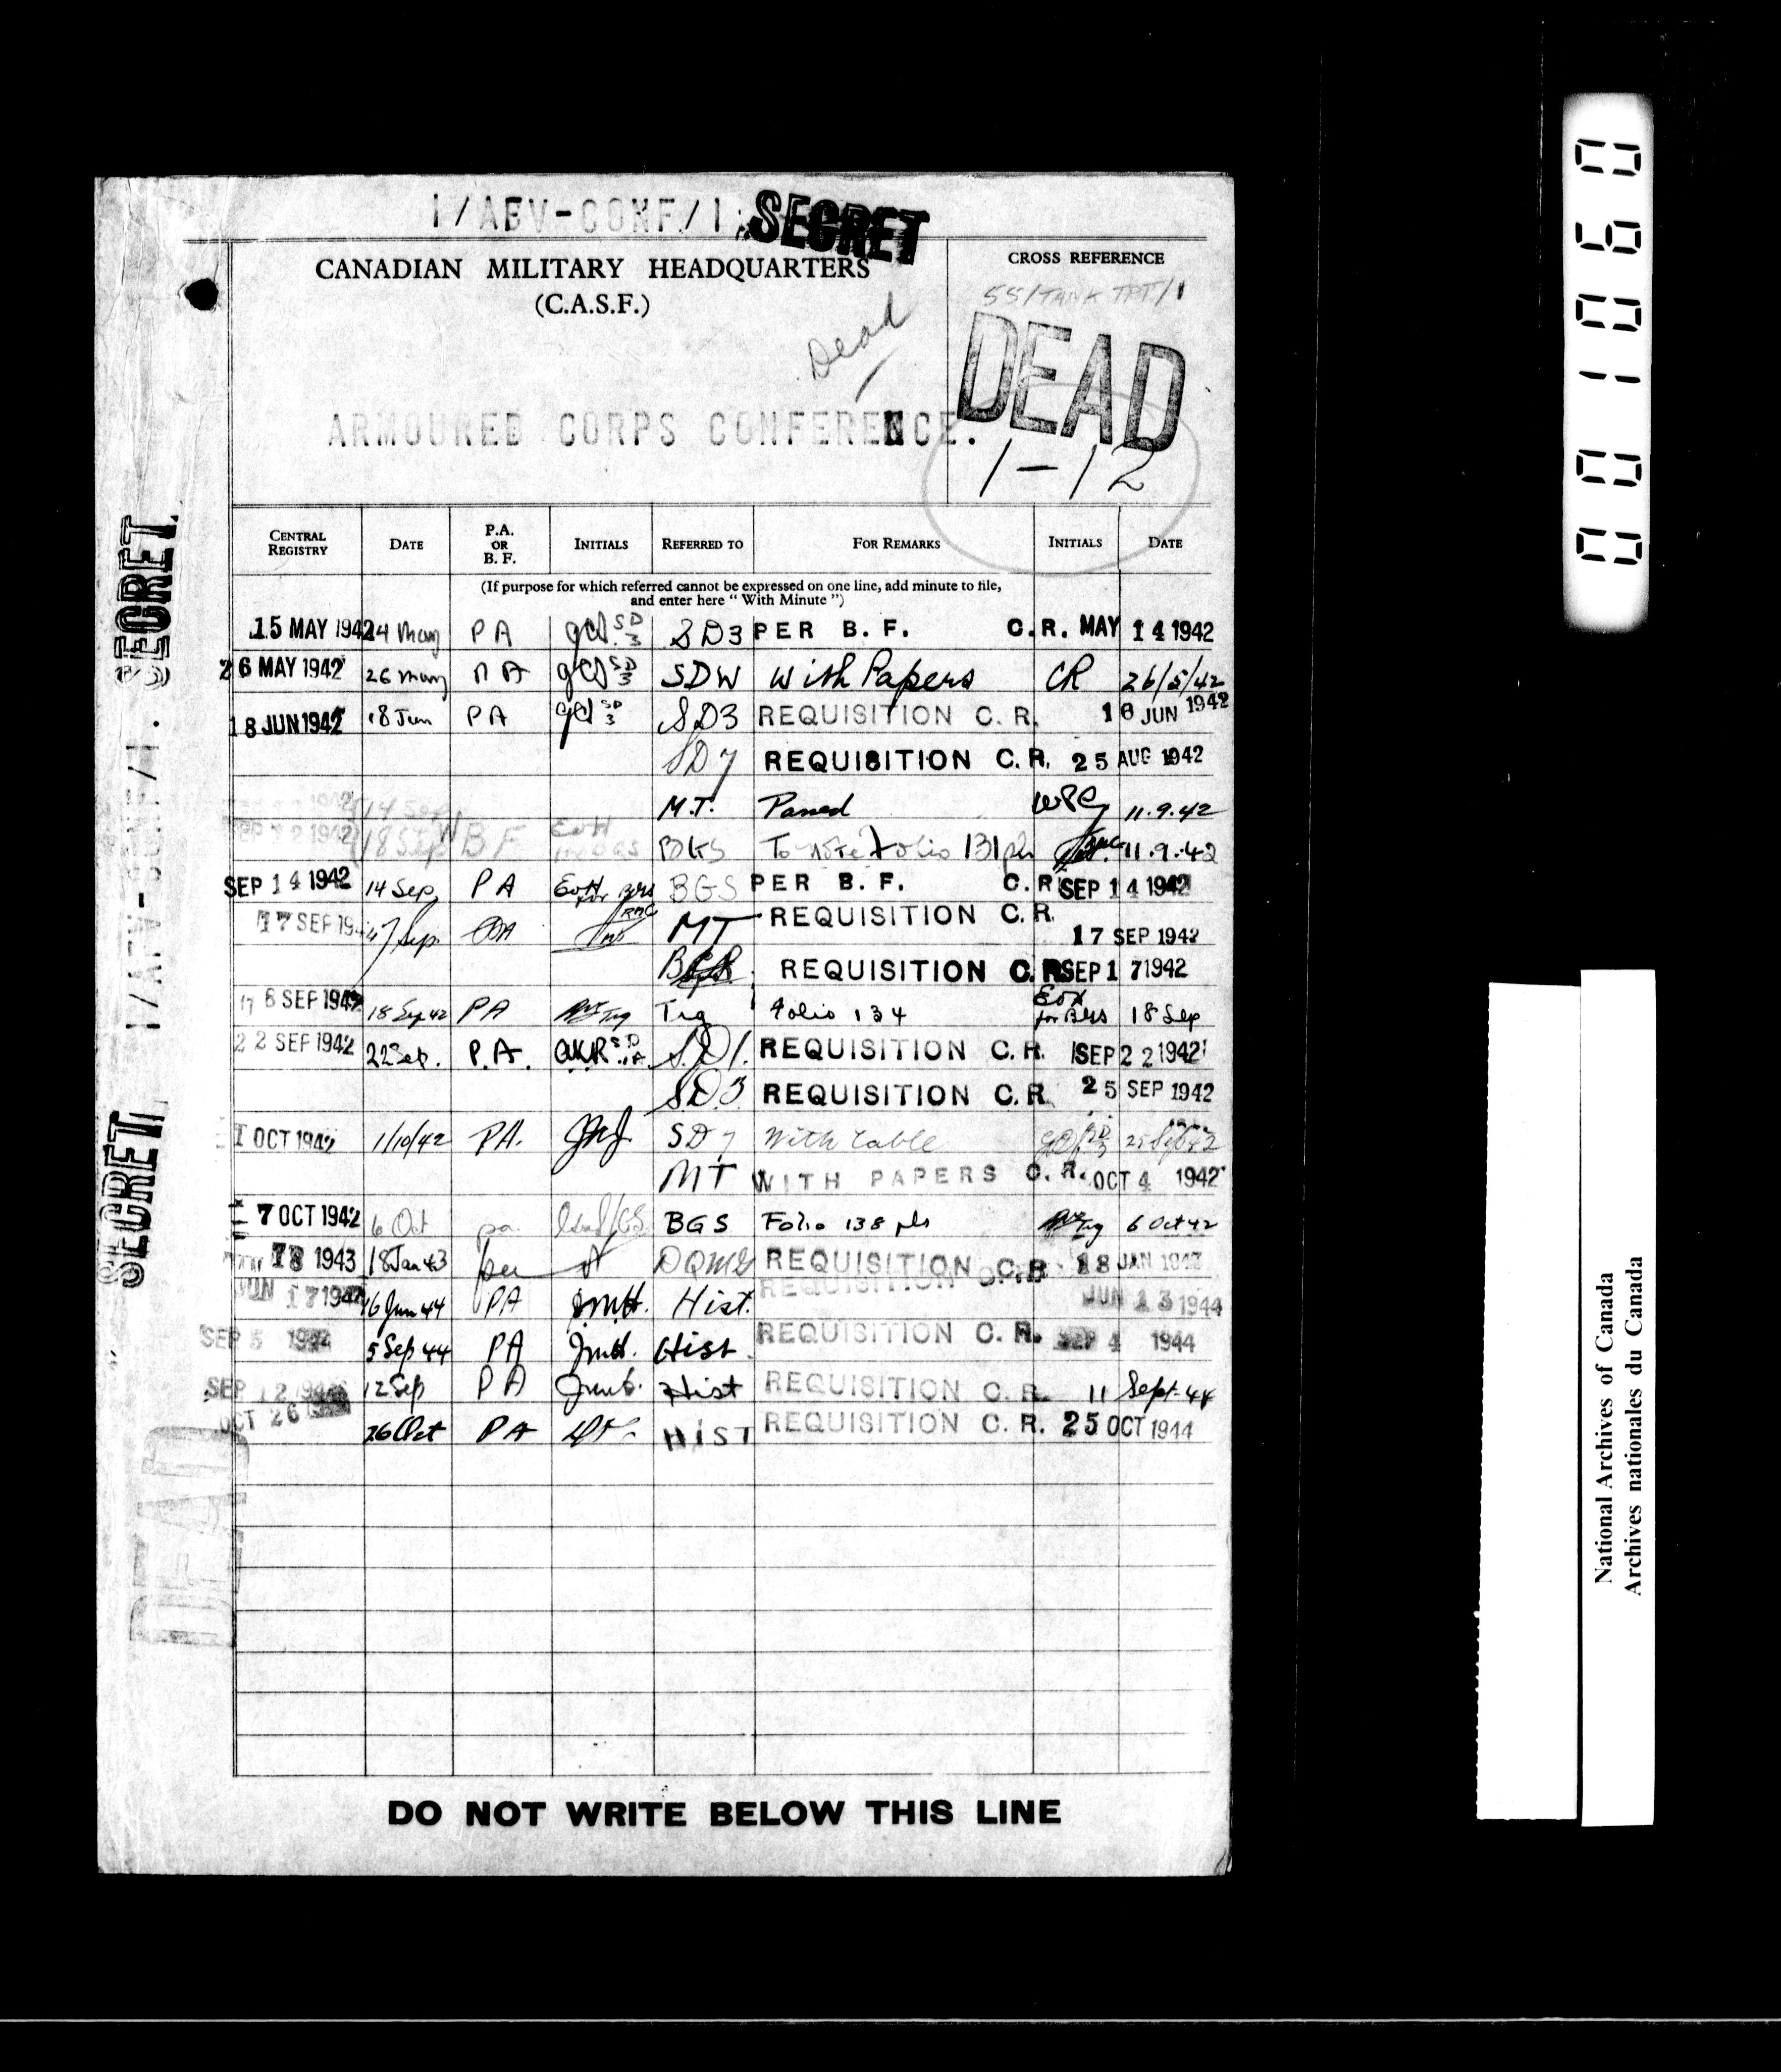 1/AFV-CONF/1 SECRET
CANADIAN MILITARY HEADQUARTERS
(C.A.S.F.)
CROSS REFERENCE
55/TANK TPT/1
Dead
DEAD
ARMOURED CORPS CONFERENCE.
1-12
CENTRAL REGISTRY DATE P.A. OR B. F. INITIALS REFERRED TO FOR REMARKS INITIALS DATE
(If purpose for which referred cannot be expressed on one line, add minute to file,
and enter here “ With Minute ”)
15 MAY 1942 PA SD3 SD3 PER B. F. C.R. MAY 14 1942
26 MAY 1942 PA SD3 SDW With Papers CR 26/5/42
18 JUN 1942 18 Jun PA SD3 SD3 REQUISITION C. R. JUN 1942
SD7 REQUISITION C. R. 25 AUG 1942
14 Sep M.T. Passed 11.9.42
SEP 12 1942 18 Sep BF EOH BGS To note folio 131 pls 11.9.42
SEP 14 1942 14 Sep PA EOH for BGS BGS PER B. F. C.R SEP 14 1942
17 SEP 19 17 Sep PA MT REQUISITION C. R. 17 SEP 1942
REQUISITION C. R SEP 17 1942
SEP 1942 18 Sep 42 PA Trg Folio 134 EOH for BGS 18 Sep
22 SEP 1942 22 Sep. P.A. SD1. REQUISITION C. R. SEP 22 1942
SD3 REQUISITION C. R. 25 SEP 1942
1 OCT 1942 1/10/42 PA. SD7 With cable Sep 42
MT WITH PAPERS C. R. OCT 4 1942
7 OCT 1942 6 Oct pa BGS Folio 138 pls Trg 6 Oct 42
18 1943 18 Jan 43 REQUISITION C. R 18 JAN
JUN 17 16 Jun 44 PA JMH. Hist. REQUISITION JUN 13 1944
SEP 5 5 Sep 44 PA JMH. Hist. REQUISITION C. R. SEP 4 1944
SEP 12 12 Sep PA Hist REQUISITION C. R. 11 Sept-44
OCT 26 26 Oct PA HIST REQUISITION C. R. 25 OCT 1944
DO NOT WRITE BELOW THIS LINE
SECRET
1/AFV-CONF/1.
SECRET
DEAD
001060
National Archives of Canada
Archives nationales du Canada